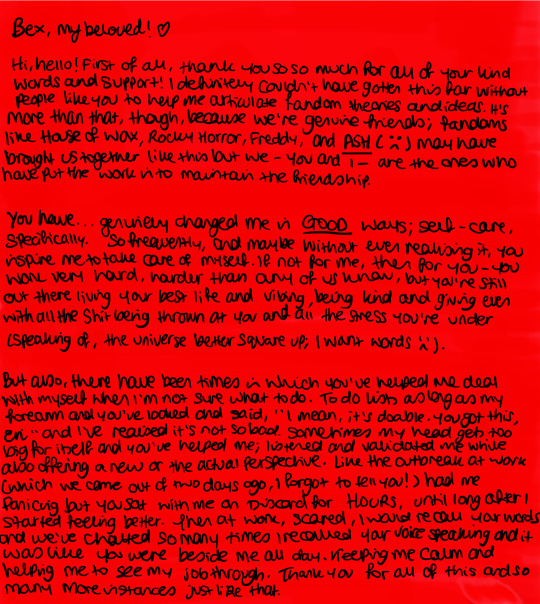 Bex, my beloved! ♡
Hi, hello! First of all, thank you so so much for all of your kind
words and support! I definitely couldn't have gotten this far without
people like you to help me articulate fandom theories and ideas. It's
more than that, though, because we're genuine friends; fandoms
like House of Wax, Rocky Horror, Freddy, and ASH (:) may have
brought us together like this but we - you and I - are the ones who
have put the work in to maintain the friendship.
You have... genuinely changed me in GOOD ways; self-care,
specifically. So frequently, and maybe without even realising it, you
inspire me to take care of myself. If not for me, then for you - you
work very hard, harder than any of us know, but you're still
out there living your best life and vibing, being kind and giving even
with all the shit being thrown at you and all the stress you're under
(speaking of, the universe better square up; I want words :).
But also, there have been times in which you've helped me deal
with myself when I'm not sure what to do. To do lists as long as my
forearm and you've looked and said, "I mean, it's doable. You got this,
eri" and I've realised it's not so bad. Sometimes my head gets too
big for itself and you've helped me; listened and validated me while
also offering a new or the actual perspective. Like the outbreak at work
(which we came out of two days ago, I forgot to tell you!) had me
panicing but you sat with me on Discord for HOURS, until long after I
started feeling better. Then at work, scared, I would recall your words
and we've chatted so many times I recalled your voice speaking and it
was like you were beside me all day. Keeping me calm and
helping me to see my job through. Thank you for all of this and so
many more instances just like that.